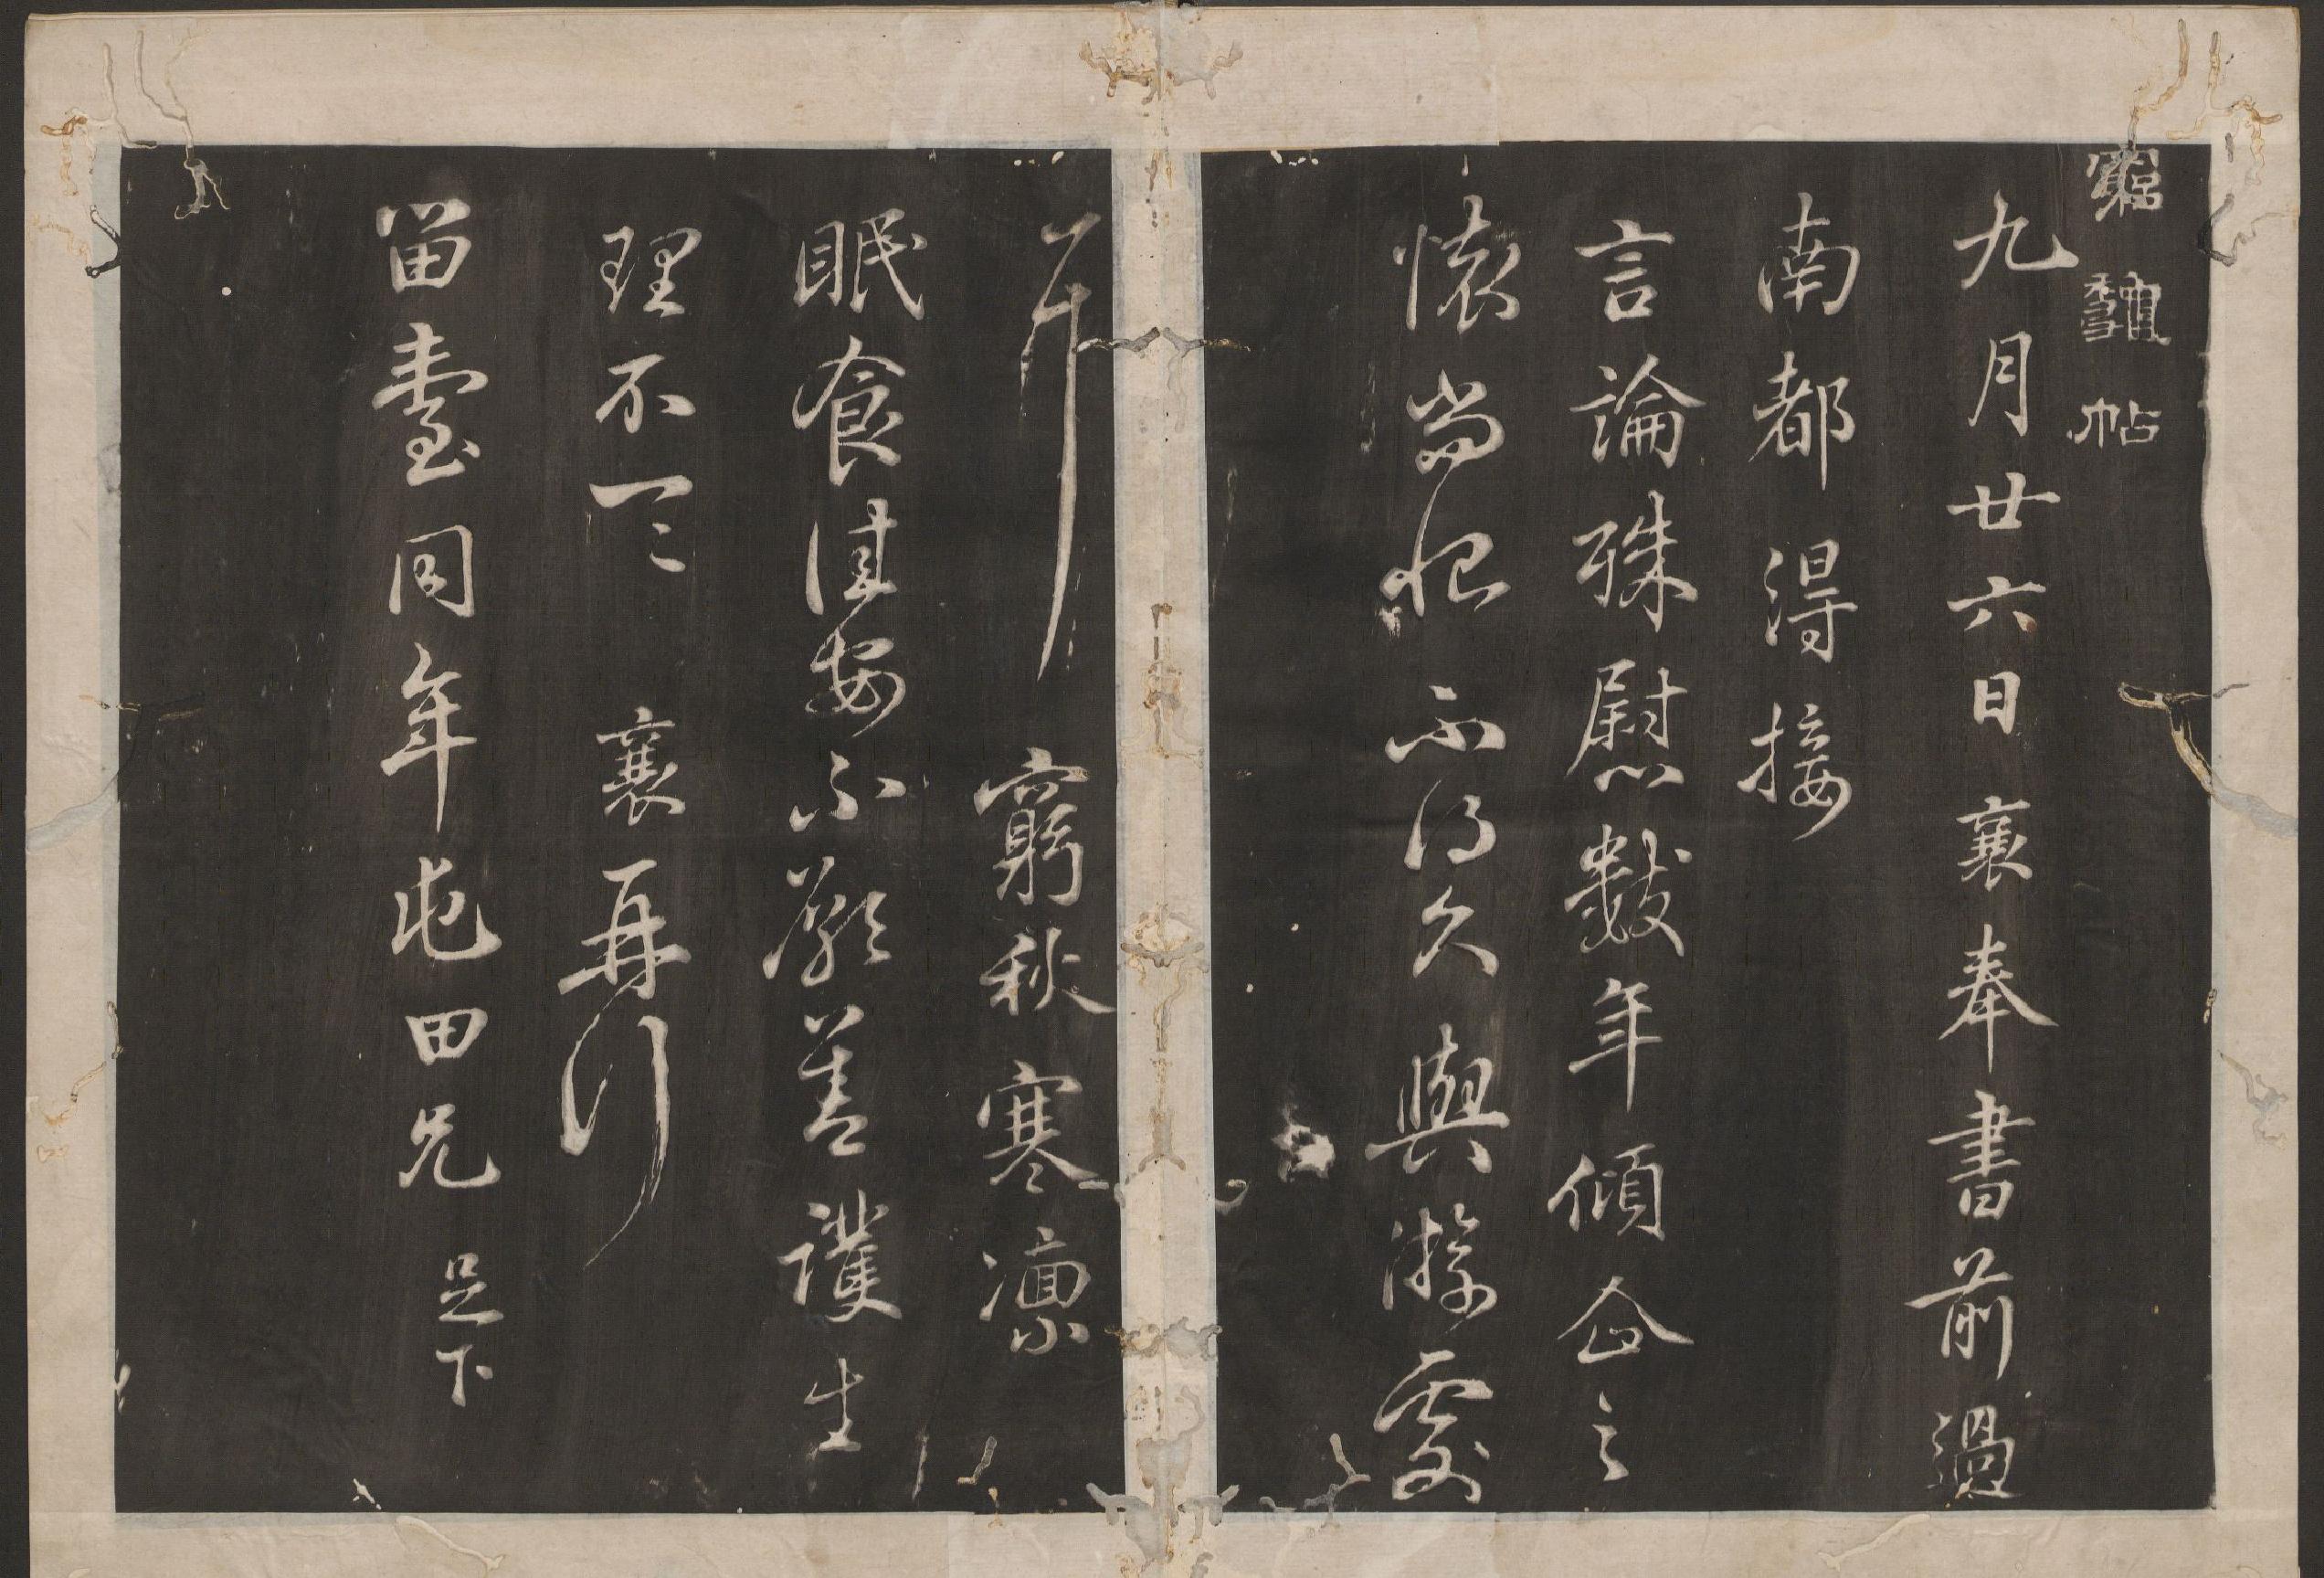 竆龝帖
九月廿六日襄奉書前過
南都得接
言論殊慰數年傾企之
懷尚恨不得久與游處
耳 窮秋寒凛
眠食佳安不願善護生
理不一一 襄再拜
留臺同年屯田兄 足下